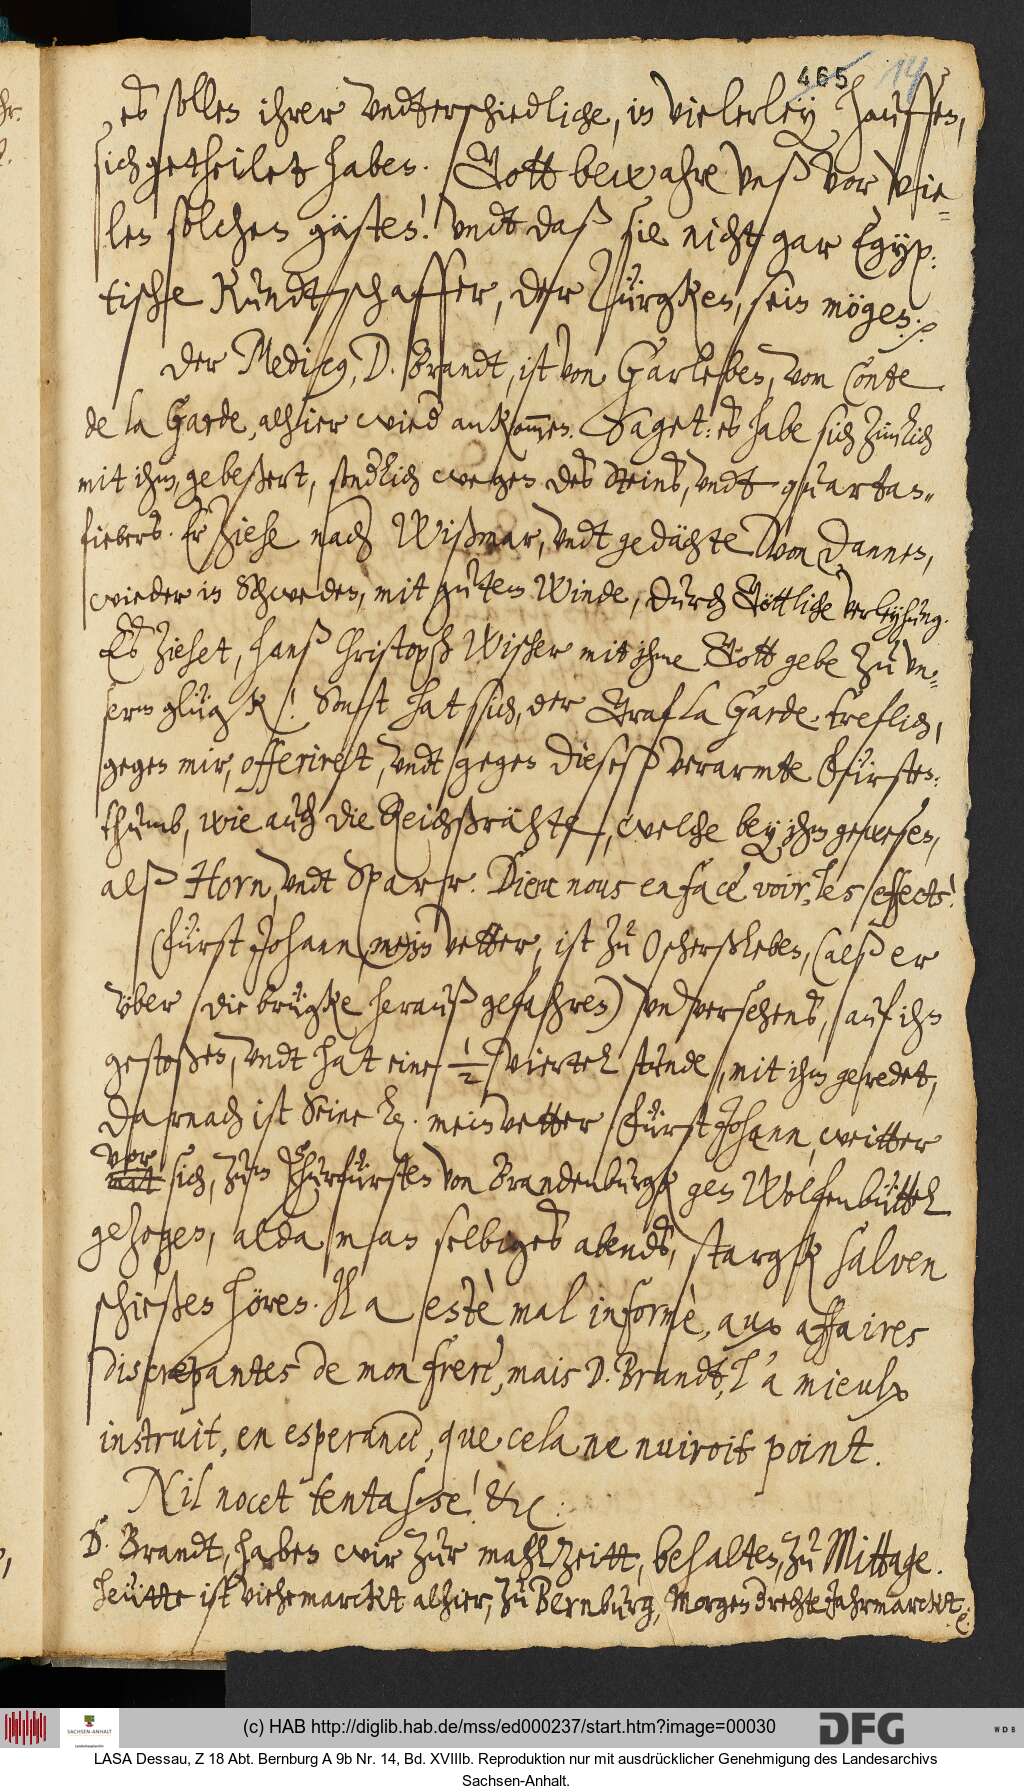 465 14
es sollen ihrer undterschiedliche, in vielerley hauffen,
sich getheilet haben. Gott bewahre unß vor vie¬
len solchen gästen! undt daß sie nicht gar Egyp:
tische Kundtschaffer, der Türgken, sein mögen. /.
Der Medicus, D. Brandt, ist von Garleben, vom Conte
de la Garde, alhier wied ankommen. Saget: es habe sich zimlich
mit ihm, gebeßert, sonderlich wegen des Steins, undt quartan¬
fiebers. Er ziehe nach Wißmar, undt gedächte von dannen,
wieder in Schweden, mit gutem Winde, durch Göttliche verleyhung.
Es ziehet, Hanß Christoph Wischer mit ihme Gott gebe zu un¬
serm glügk! Sonst hat sich, der Graf la Garde, treflich,
gegen mir, offeriret, undt gegen dieseß verarmte Fürsten:
thumb, wie auch die Reichßrähte, welche bey ihm gewesen,
alß Horn, undt Sparr. Dieu nous en face voir, les effects!
Fürst Johann, mein vetter, ist zu Oscherßleben, (alß er
über die brügke herauß gefahren) unversehens, auf ihn
gestoßen, undt hat eine ½ viertel stunde, mit ihm geredet,
Darnach ist Seine L. mein vetter Fürst Johann, weitter
vor
mitt sich, zum Churfürsten von Brandenburgk gen Wolfenbüttel
gezogen, alda man selbiges abends, stargk salven
schießen hören. Il a estè mal informè, aux affaires
discrepantes de mon frere, mais D. Brandt, l'a mieulx
instruit, en esperance, que cela ne nuiroit point.
Nil nocet tentasse! etc.
D. Brandt, haben wir zur mahlzeitt, behalten, zu Mittage.
Heütte ist viehemarckt alhier, zu Bernburg, Morgen drehte Jahrmarckt
(c) HAB http://diglib.hab.de/mss/ed000237/start.htm?image=00030
SACHSEN-ANHALT
DFG
WDB
LASA Dessau, Z 18 Abt. Bernburg A 9b Nr. 14, Bd. XVIIIb. Reproduktion nur mit ausdrücklicher Genehmigung des Landesarchivs
Sachsen-Anhalt.